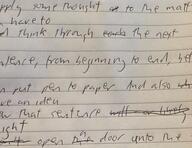 pply some thought to the matt
, have to
d think through the next
ntence, from beginning to end, bef
n put pen to paper. And also
ve an idea
w that sentence will or likely
ght
open a door unto the